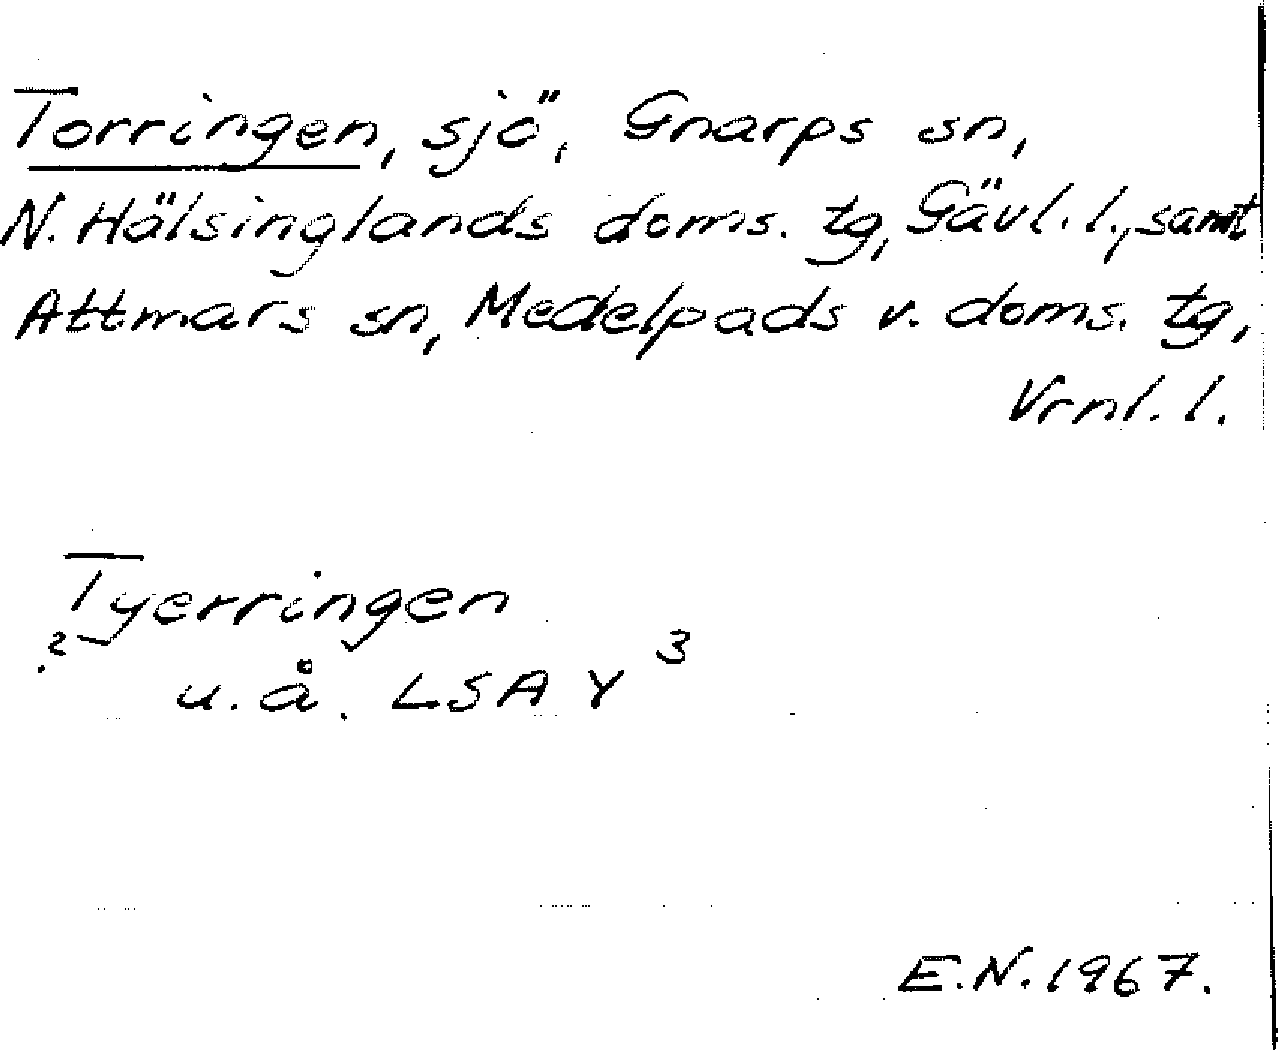 Torringen, sjö, Gnarps sn,
N. Hälsinglands doms. tg, Gävl. l., samt
Attmars sn, Medelpads v. doms. tg,
Vrnl. l.
Tyerringen
?
u. å. LSA Y 3
E.N. 1967.